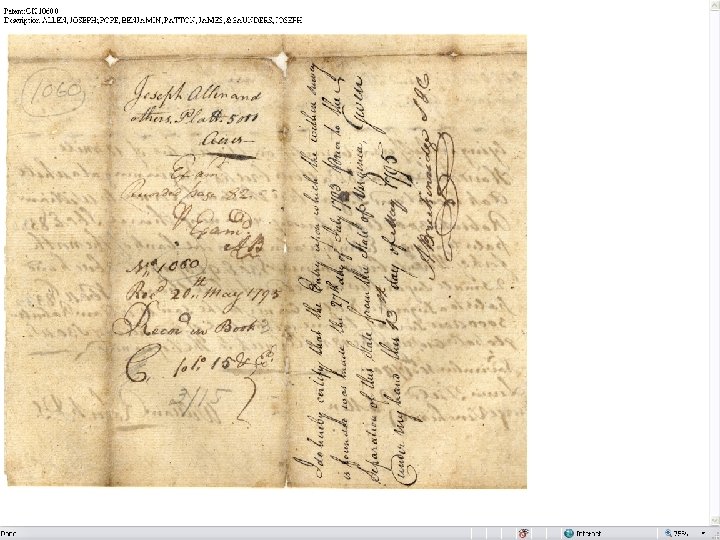 Patent: GR 1060.0
Description: ALLEN, JOSEPH; POPE, BENJAMIN; PATTON, JAMES; & SAUNDERS, JOSEPH
1060
Joseph Allin and
others. Platt. 5000
Acres
Exam.d
Recorded page 82
Exam.d
AB
No. 1060
Recd. 20th May 1795
Recor.d in Book
C. fo. 15 & Ed.
3/15
I do hereby certify that the Entry upon which the within survey
is founded was made the 27th day of July 1783 Prior to the
Separation of this State from the State of Virginia, Given
under my hand this 13th day of May 1795
Breckinridge
Done
Internet
75%